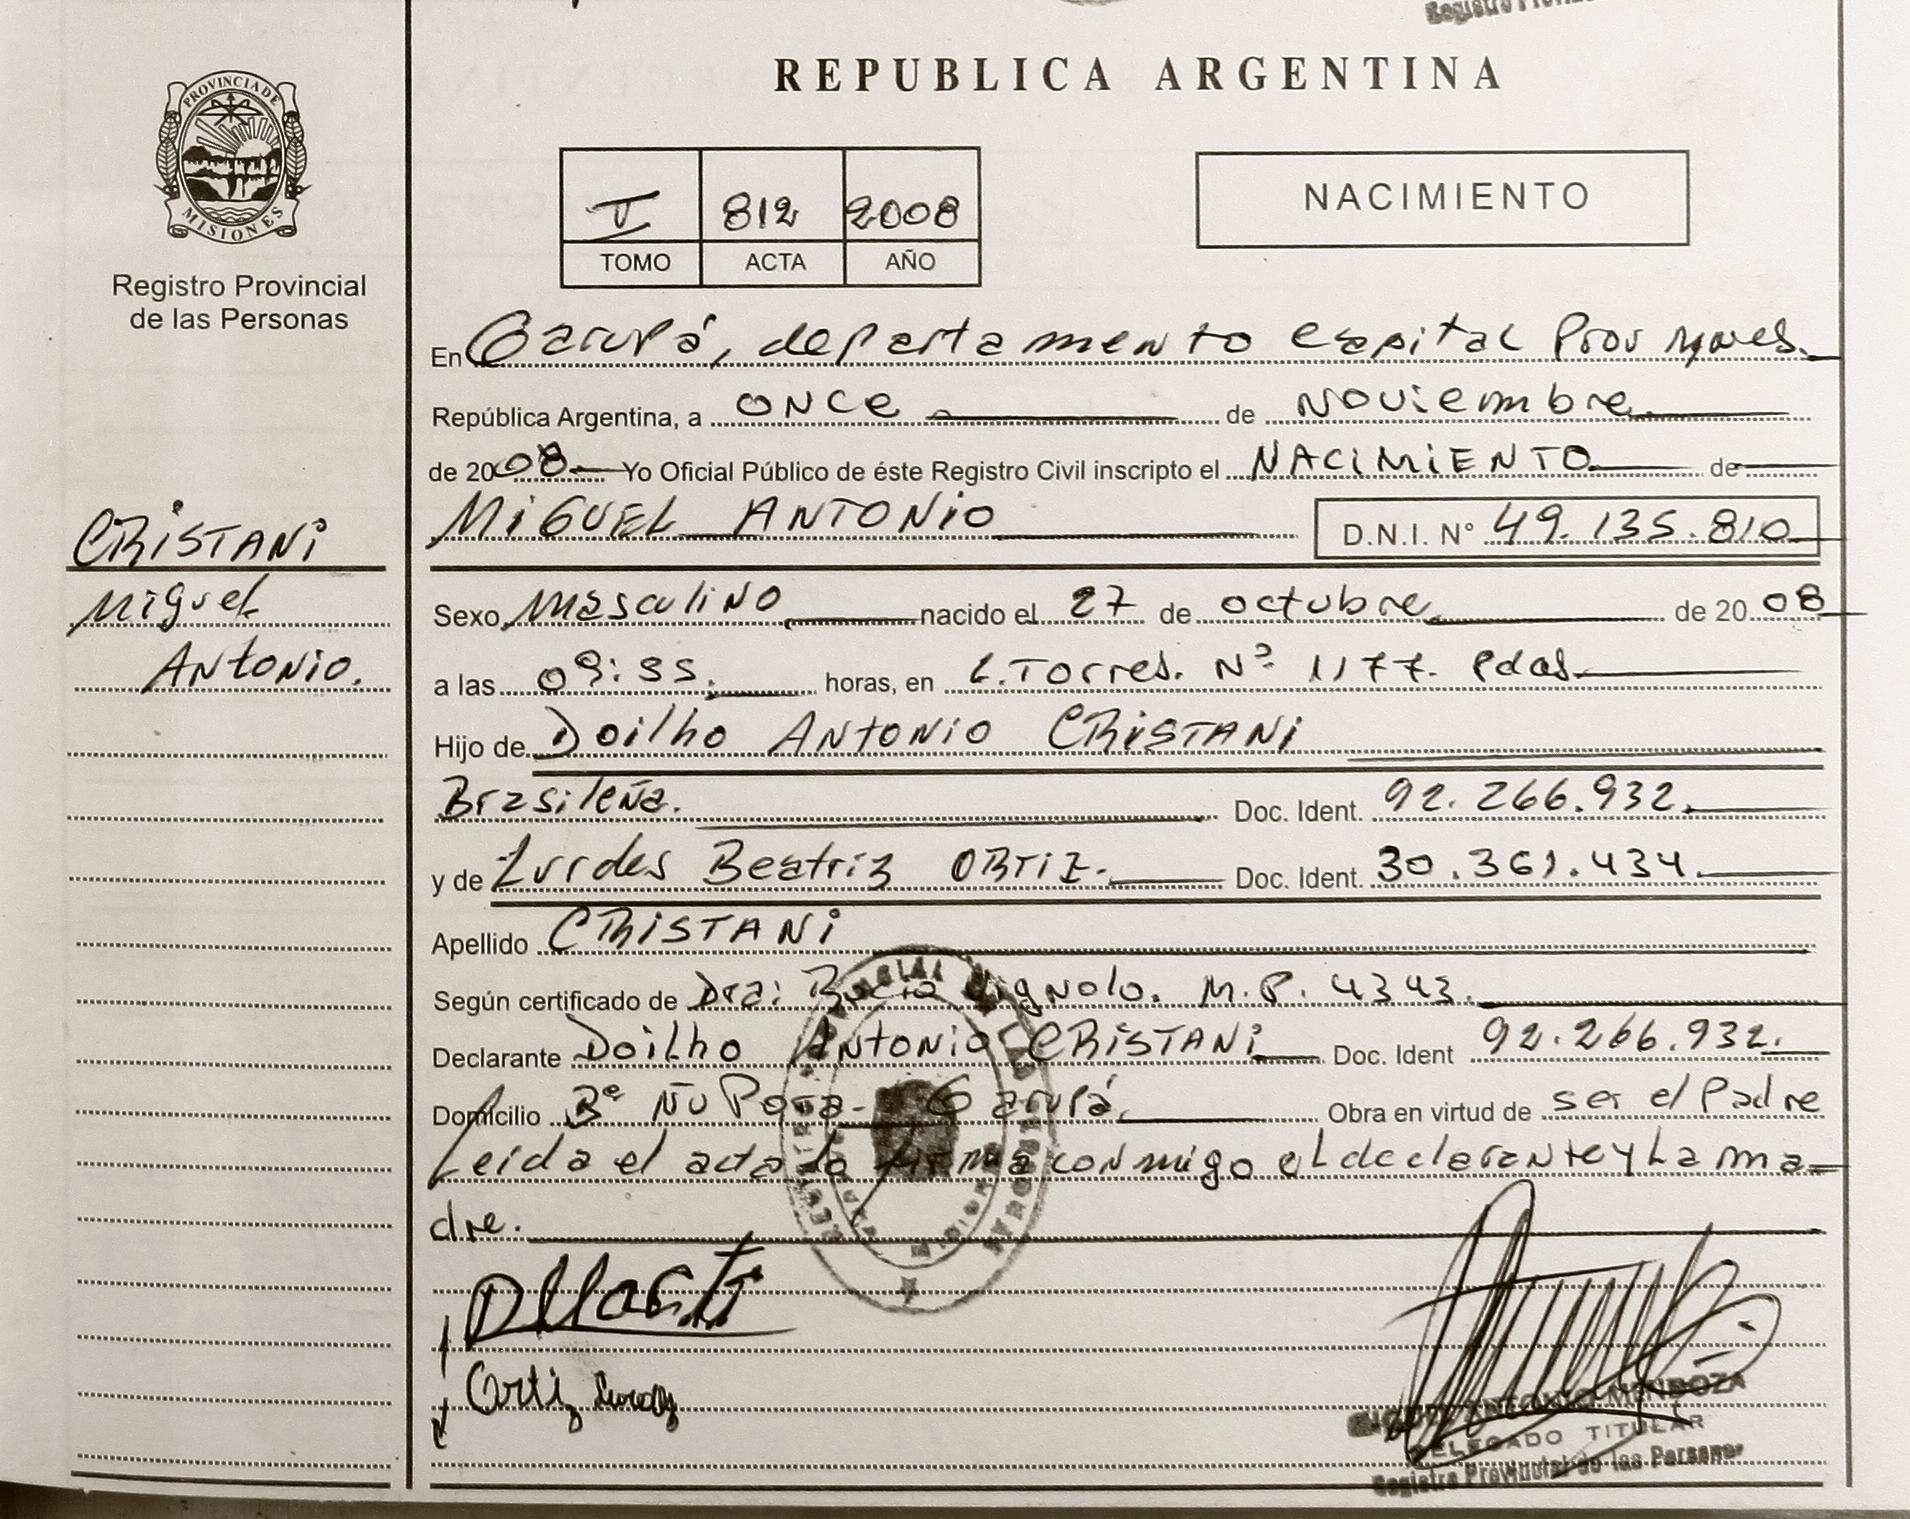 Registro Provin
PROVINCIA DE
MISIONES
Registro Provincial
de las Personas
CRISTANI
Miguel
ANTONIO.
REPUBLICA ARGENTINA
812 2008
TOMO ACTA AÑO
NACIMIENTO
En Garupá, departamento Capital Prov Mnes.
República Argentina, a ONCE de Noviembre
de 2008 Yo Oficial Público de éste Registro Civil inscripto el NACIMIENTO de
MIGUEL ANTONIO D.N.I. N° 49.135.810
Sexo Masculino nacido el 27 de octubre de 2008
a las 09:35. horas, en L. Torres. Nº 1177. Pdas
Hijo de Doilho ANTONIO CRISTANI
Brasileña. Doc. Ident. 92.266.932.
y de Lurdes Beatriz ORTIZ. Doc. Ident. 30.361.434.
Apellido CRISTANI
Según certificado de Dra: Rocío Vignolo. M.P. 4343.
Declarante Doilho ANTONIO CRISTANI Doc. Ident 92.266.932.
Domicilio Bº Ñu Pora - Garupá. Obra en virtud de ser el Padre
Leida el acta la firma conmigo el declarante y La ma=
dre.
Ortiz
MIGUEL ANTONIO MENDOZA
DELEGADO TITULAR
Registro Provincial de las Personas